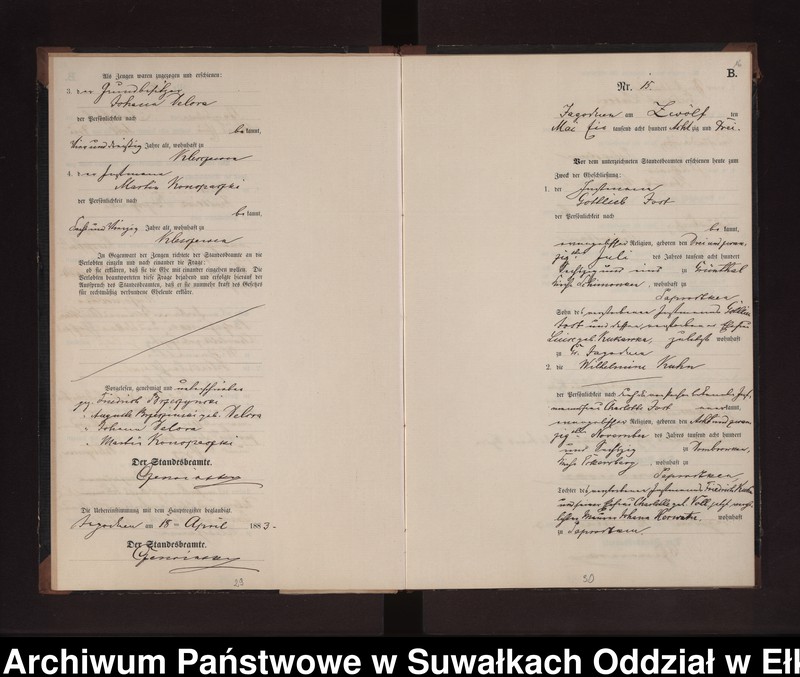 Als Zeugen waren zugezogen und erschienen:
3. der Grundbesitzer
Johann Velora
der Persönlichkeit nach
bekannt,
vier und dreißig Jahre alt, wohnhaft zu
4. der Instmann
Martin Konopatzki
der Persönlichkeit nach
bekannt,
sechs und vierzig Jahre alt, wohnhaft zu
In Gegenwart der Zeugen richtete der Standesbeamte an die
Verlobten einzeln und nach einander die Frage:
ob sie erklären, daß sie die Ehe mit einander eingehen wollen. Die
Verlobten beantworteten diese Frage bejahend und erfolgte hierauf der
Ausspruch des Standesbeamten, daß er sie nunmehr kraft des Gesetzes
für rechtmäßig verbundene Eheleute erkläre.
Vorgelesen, genehmigt und unterschrieben
gez. Friedrich
" Auguste geb. Velora
" Johann Velora
" Martin Konopatzki
Der Standesbeamte.
Die Uebereinstimmung mit dem Hauptregister beglaubigt.
Jagodnen am 18ten April 1883.
Der Standesbeamte.
29
B.
Nr. 15.
Jagodnen am Zwölf ten
Mai Ein tausend acht hundert Achtzig und Drei.
Vor dem unterzeichneten Standesbeamten erschienen heute zum
Zweck der Eheschließung:
1. der Instmann
Gottlieb Jost
der Persönlichkeit nach
bekannt,
evangelischer Religion, geboren den Drei und zwan-
zigsten Juli des Jahres tausend acht hundert
Sechzig und eins zu Grünthal
Kreis , wohnhaft zu
Saprodtken
Sohn des verstorbenen Instmanns Gottlieb
Jost und dessen verstorbenen Ehefrau
Luise geb. , zuletzt wohnhaft
zu Gr. Jagodnen
2. die Wilhelmine Kuhn
der Persönlichkeit nach
Charlotte Jost bekannt,
evangelischer Religion, geboren den Acht und zwan-
zigsten November des Jahres tausend acht hundert
und Sechzig zu Dombrowken,
Kreis , wohnhaft zu
Saprodtken
Tochter des verstorbenen Instmanns Friedrich Kuhn
und seiner Ehefrau Charlotte geb. jetzt
Johann , wohnhaft
zu Saprodtken
30
Archiwum Państwowe w Suwałkach Oddział w Ełk